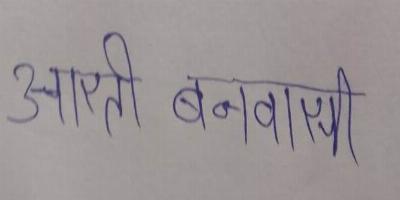 आरती बनवासी